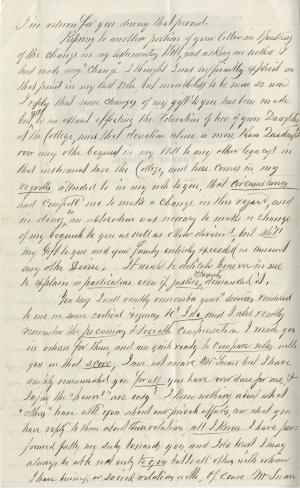 I in return for you during that period.
Refering to another portion of your letter in speaking
of the change in my testimentary Will, and asking me whether I
had made any "Change" I thought I was sufficiently explicit on
that point in my last Note, but nevertheless to be more so now
I reply that some changes of my gift to you has been made
but to an extent affecting the Education of two of your Daughters
at the College, and that donation alone is more than
over any other bequest in my Will to any other legatees in
that instrument save the College, and here comes in my
regrets alluded to in my note to you, that circumstances
had compelled me to make a change in this regard, and
in doing so instruction was necessary to make a change
of my bequests to you as well as others devised, but still
my Gift to you and your family entirely exceeded in amount
any other Devise. It would be delicate however in me
to explain in particulars even if justice demanded it.
You say I will readily remember your services rendered
to me in some critical exigency &c. I do, and I also readily
remember the pecuniary & compensation I made you
in return for them, and am quite ready to compare notes with
you on that score, I am not aware Mr. but I have
amply remunerated you for all you have ever done for me, &
I know nothing about what
"others" have told you about our private affairs, nor what you
have replied to them about this relation, all I know I have per-
formed fully my duty towards you, and I do trust I may
always be able not only to you but to all others with whom
I have business or social relation with, of course Mr.